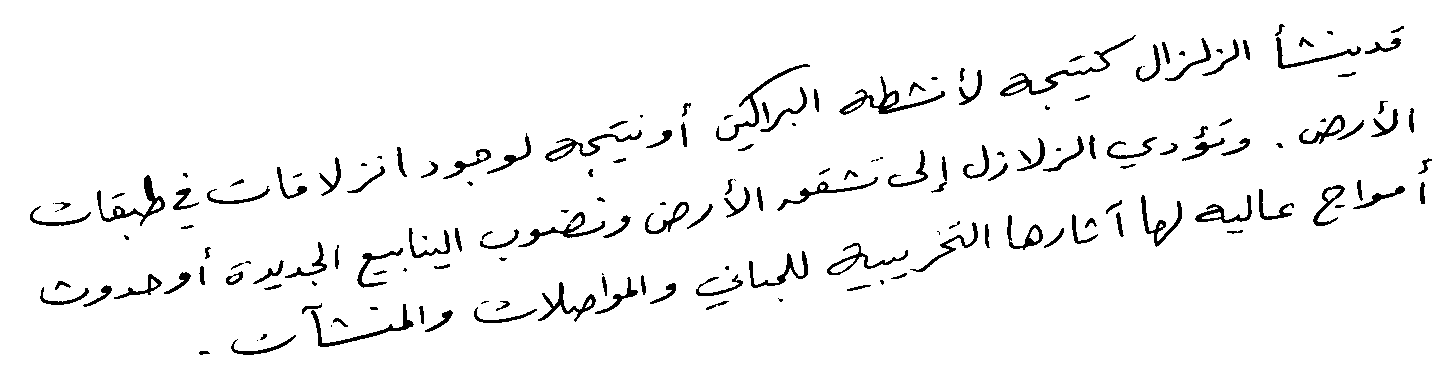 قد ينشأ الزلزال كنتيجة لأنشطة البراكين أو نتيجة لوجود انزلاقات في طبقات
الأرض . وتؤدي الزلازل إلى تشقق الأرض ونضوب الينابيع الجديدة أو حدوث
أمواج عالية لها آثارها التخريبية للمباني والمواصلات والمنشآت .